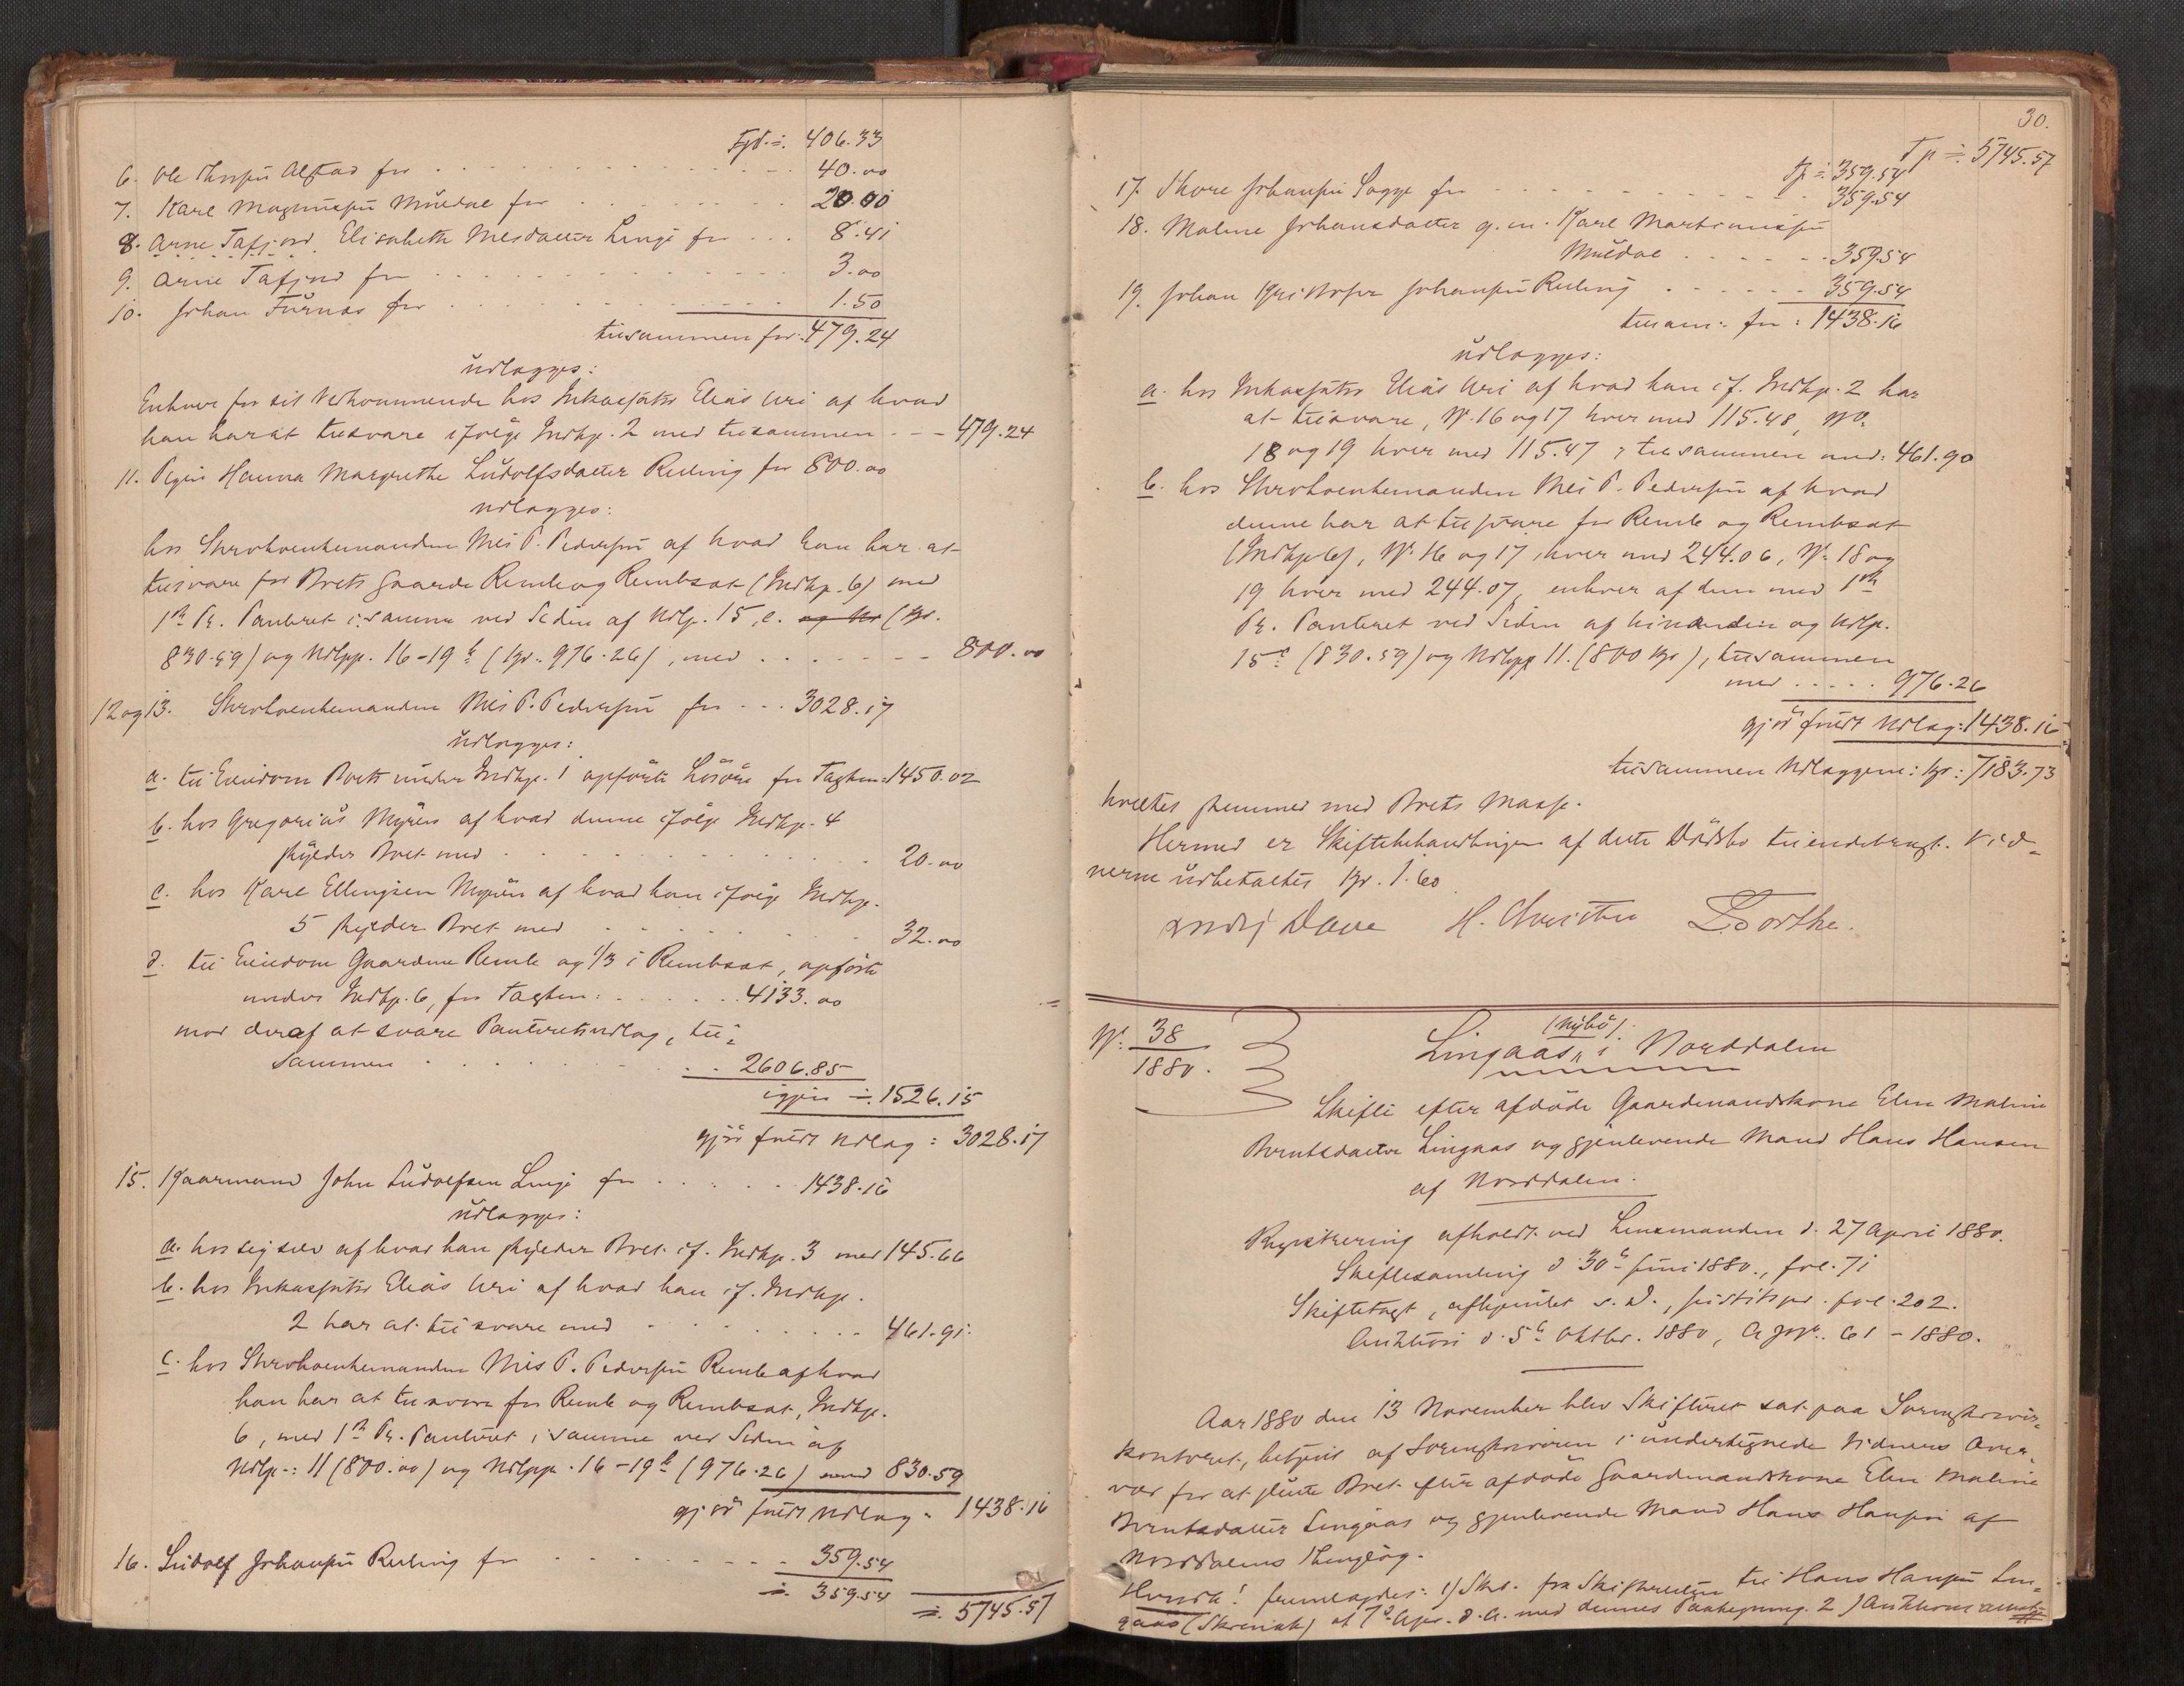 Fgt. ÷. 406.33
6. Ole Alstad for 40.00
7. Karl Magnusen Muldal for 20.00
8. Arne Tafjord Elisabeth Nilsdatter Linge for 8.41
9. Arne Tafjord for 3.00
10. Johan Furnæs for 1.50
tilsammen for: 479.24
udlægges:
Enhver for sit Vedkommende hos Inkassator Elias Uri af hvad
han har at tilsvare ifølge Indtp. 2 med tilsammen 479.24
11. Pigen Hanna Margrethe Ludolfsdatter Reiling for 800.00
udlægges:
hos Skrothoenkemanden Nils P. Pedersen af hvad han har at
tilsvare for Boets Gaarde Remle og Remlesæt (Indtp. 6) med
1ste Pr. Panteret i samme ved Siden af Udlp. 15, c. og No (Kr.
830.59) og Udlpp. 16-19 b (Kr. 976.26), med 800.00
12 og 13. Enkemanden Nils P. Pedersen for 3028.17
udlægges:
a. til Eiendom Boets under Indtp. 1 opførte Løsøre for Taxten: 1450.02
b. hos Gregorius Myren af hvad denne ifølge Indtp. 4
skylder Boet med 20.00
c. hos Karl Ellingsen Myren af hvad han ifølge Indtp.
5 skylder Boet med 32.00
d. til Eiendom Gaarden Remle og 1/3 i Remlesæt, opført
under Indtp. 6, for Taxten: 4133.00
mod deraf at svare Panteretsudlæg, til-
sammen 2606.85
igjen ÷. 1526.15
gjør fuldt Udlæg: 3028.17
15. Gaardmand John Ludolfsen Linge for 1438.16
udlægges:
a. hos sig selv af hvad han skylder Boet if. Indtp. 3 med 145.66
b. hos Inkassator Elias Uri af hvad han if. Indtp.
2 har at tilsvare med 461.91
c. hos Enkemanden Nils P. Pedersen Remle af hvad
han har at tilsvare for Remle og Remlesæt, Indtp.
6, med 1ste Pr. Panteret i samme ved Siden af
Udlp.: 11 (800.00) og Udlpp. 16-19 b (976.26) med 830.59
gjør fuldt Udlæg: 1438.16
16. Ludolf Johansen Reiling for 359.54
÷ 359.54
÷. 5745.57
30.
Tp ÷. 5745.57
Tp ÷ 359.54
17. Thore Johansen Sogge for 359.54
18. Maline Johansdatter g. m. Karl Martinusen
Muldal 359.54
19. Johan Kristofer Johansen Reiling 359.54
tilsam: for: 1438.16
udlægges:
a. hos Inkassator Elias Uri af hvad han if. Indtp. 2 har
at tilsvare, No. 16 og 17 hver med 115.48, No.
18 og 19 hver med 115.47; tilsammen med: 461.90
b. hos Enkemanden Nils P. Pedersen af hvad
denne har at tilsvare for Remle og Remlesæt
(Indtp. 6), No. 16 og 17, hver med 244.06, No. 18 og
19 hver med 244.07, enhver af dem med 1ste
Pr. Panteret ved Siden af hinanden og Udlp.
15 c (830.59) og Udlpp 11. (800 Kr), tilsammen
med 976.26
gjør fuldt Udlæg: 1438.16
tilsammen Udlæggene: Kr: 7183.73
hvilket stemmer med Boets Masse.
Hermed er Skiftebehandlingen af dette Dødsbo tilendebragt. Vid-
nerne udbetaltes Kr. 1.60
H.
No. 38
1880.
(Nybø)
Lingaas, i Norddalen
Skifte efter afdøde Gaardmandskone Elen Maline
Berntsdatter Lingaas og gjenlevende Mand Hans Hansen
af Norddalen.
Registrering afholdt ved Lensmanden d. 27 April 1880.
Skiftesamling d 30te Juni 1880., fol. 71
Skiftetaxt, afhjemlet s. D., fol. 202.
Auktion d. 5te Oktbr. 1880, 61 - 1880.
Aar 1880 den 13 November blev Skifteret sat paa Sorenskriver-
kontoret, betjent af Sorenskriveren i undertegnede Vidners Over-
vær for at slutte Boet efter afdøde Gaardmandskone Elen Maline
Berntsdatter Lingaas og gjenlevende Mand Hans Hansen af
Norddalens Thinglag.
Hvorda! fremlagdes: 1) Skr. fra Skifteretten til Hans Hansen Lin-
gaas (Skriveb) af 7de d. A. med dennes Paategning. 2)